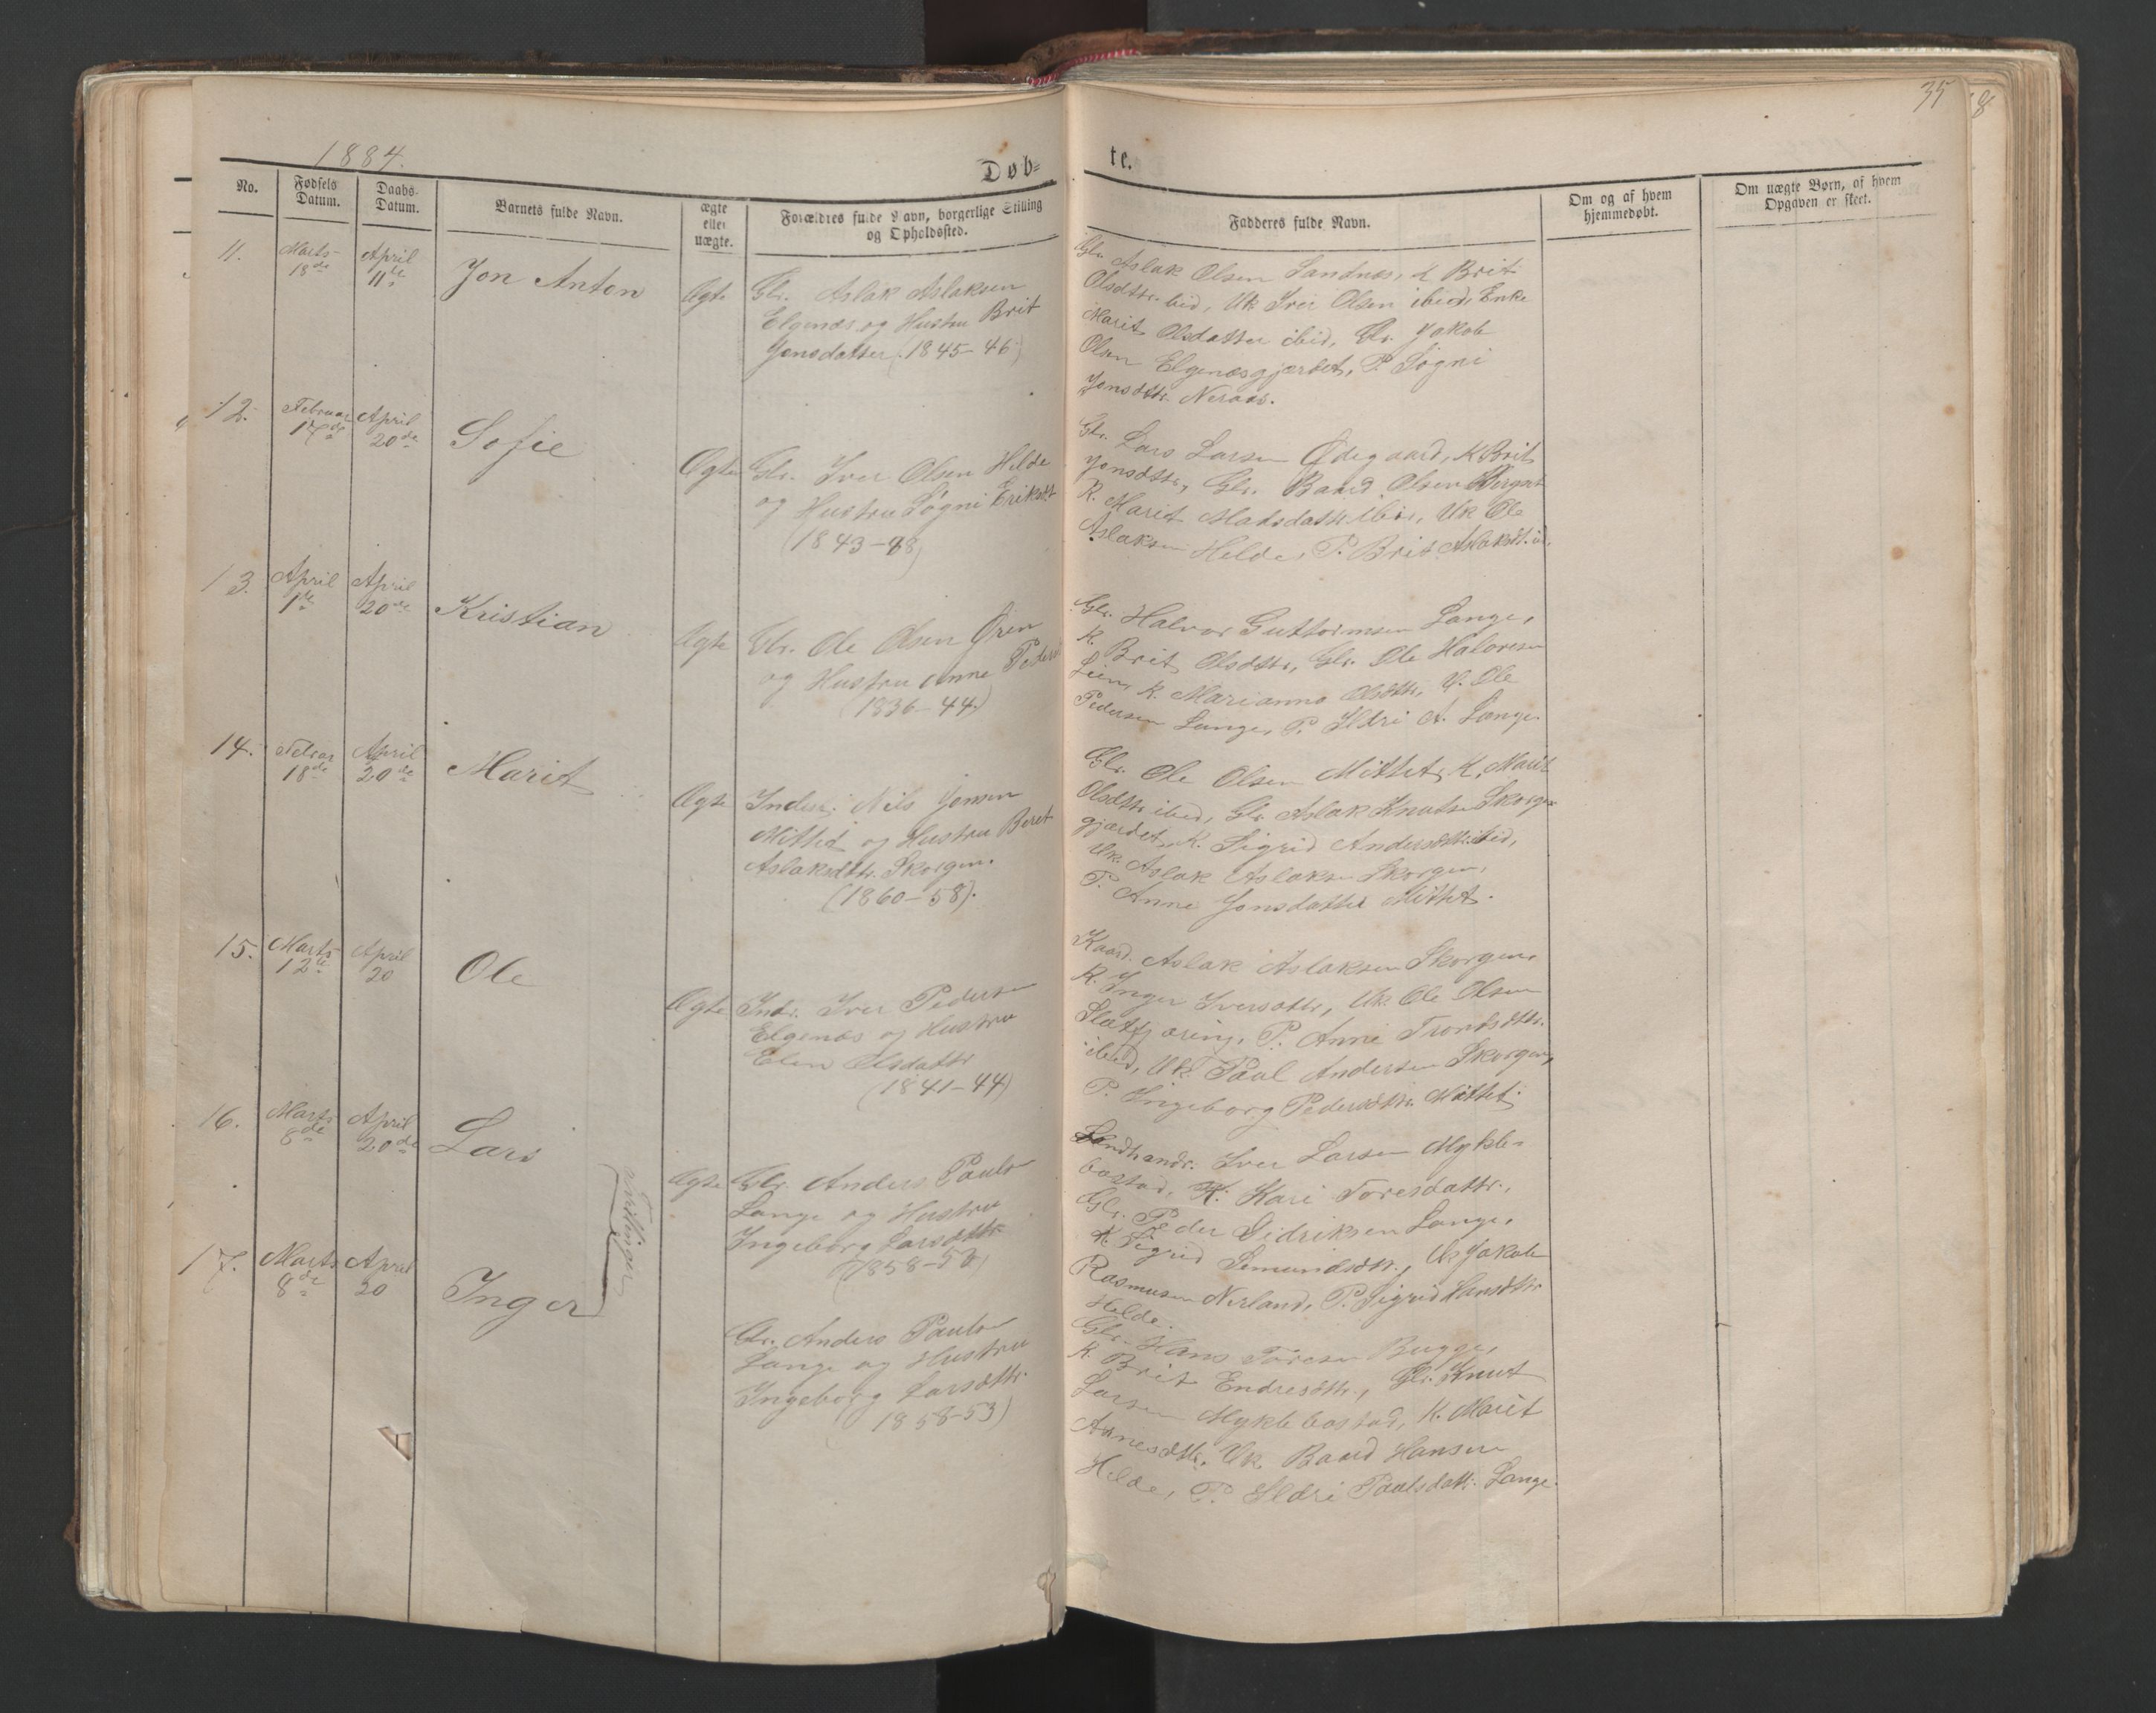 35
8
1884.
Døb=
te.
No.
Fødsels Datum.
Daabs-Datum.
Barnets fulde Navn.
ægte eller uægte.
Forældres fulde Navn, borgerlige Stilling og Opholdssted.
Fadderes fulde Navn.
Om og af hvem hjemmedøbt.
Om uægte Børn, af hvem Opgaven er skeet.
11.
Marts 18de
April 11te
Jon Anton
Ægte
Gbr. Aslak Aslaksen
Elgenæs og Hustru Brit
Jonsdatter (1845-46)
Gbr. Aslak Olsen Sandnæs, K Brit
Olsdttr. ibid, Uk. Iver Olsen ibid, Enke
Marit Olsdatter ibid, Gbr. Jakob
Olsen Elgenæsgjærdet, P. Søgni
Jonsdttr. Neraas.
12.
Februar 17de
April 20de
Sofie
Ægte
Gbr. Iver Olsen Hilde
og Hustru Søgni Eriksdtt
(1843-48)
Gbr. Lars Larsen Ødegaard, K Brit
Jonsdttr, Gbr. Baard Olsen
K. Marit Matsdattr. ibid, Uk Ole
Aslaksen Helde, P. Brit Aslaksdt. ib.
13.
April 1de
April 20de
Kristian
Ægte
Gbr. Ole Olsen Øren
og Hustru Anne Pedersd
(1836-44)
Gbr. Halvor Guttormsen Lange,
K. Brit Olsdttr, Gbr. Ole Halvorsen
Lien, K. Marianne Olsdttr, U. Ole
Pedersen Lange, P. Ildri A. Lange.
14.
Febuar 18de
April 20de
Marit
Ægte
Inders. Nils Jonsen
Mittet og Hustru Beret
Aslaksdttr. Skorgen.
(1860-58).
Gbr. Ole Olsen Mittet, K. Marit
Olsdttr ibid, Gbr Aslak Knutsen Skorge=
gjærdet, K. Sigrid Andersdttr. ibid,
Uk. Aslak Aslaksen Skorgen,
P. Anne Jonsdatter Mittet.
15.
Marts 12te
April 20
Ole
Ægte
Indr. Iver Pedersen
Elgenæs og Hustru
Elen Olsdattr
(1841-44)
Kaard. Aslak Aslaksen Skorgen,
K. Inger Iversdttr, Uk. Ole Olsen
Slætfjæring, P. Anne Trondsdttr.
ibid, Uk. Paul Andersen Skorgen,
P. Ingeborg Pedersdttr. Mittet.
16.
Marts 8de
April 20de
Lars
Tvillinger
Ægte
Gbr. Anders Paulsn
Lange og Hustru
Ingeborg Larsdttr.
(1858-53)
Landhandr. Iver Larsen Mykle=
bostad, K. Kari Toresdattr.,
Gbr. Peder Didriksen Lange,
K. Sigrid Semundsdttr., Uk Jakob
Rasmusen Nerland, P. Sigrid Hansdttr
Helde.
17.
Marts 8de
April 20
Inger
Gbr. Anders Paulsn
Lange og Hustru
Ingeborg Larsdttr.
1858-53)
Gbr. Hans Toresen Bugge,
K. Brit Endresdttr., Gbr. Knut
Larsen Myklebostad, K. Marit
Arnesdttr. Uk. Baard Hansen
Helde, P. Ildri Paulsdattr. Lange.